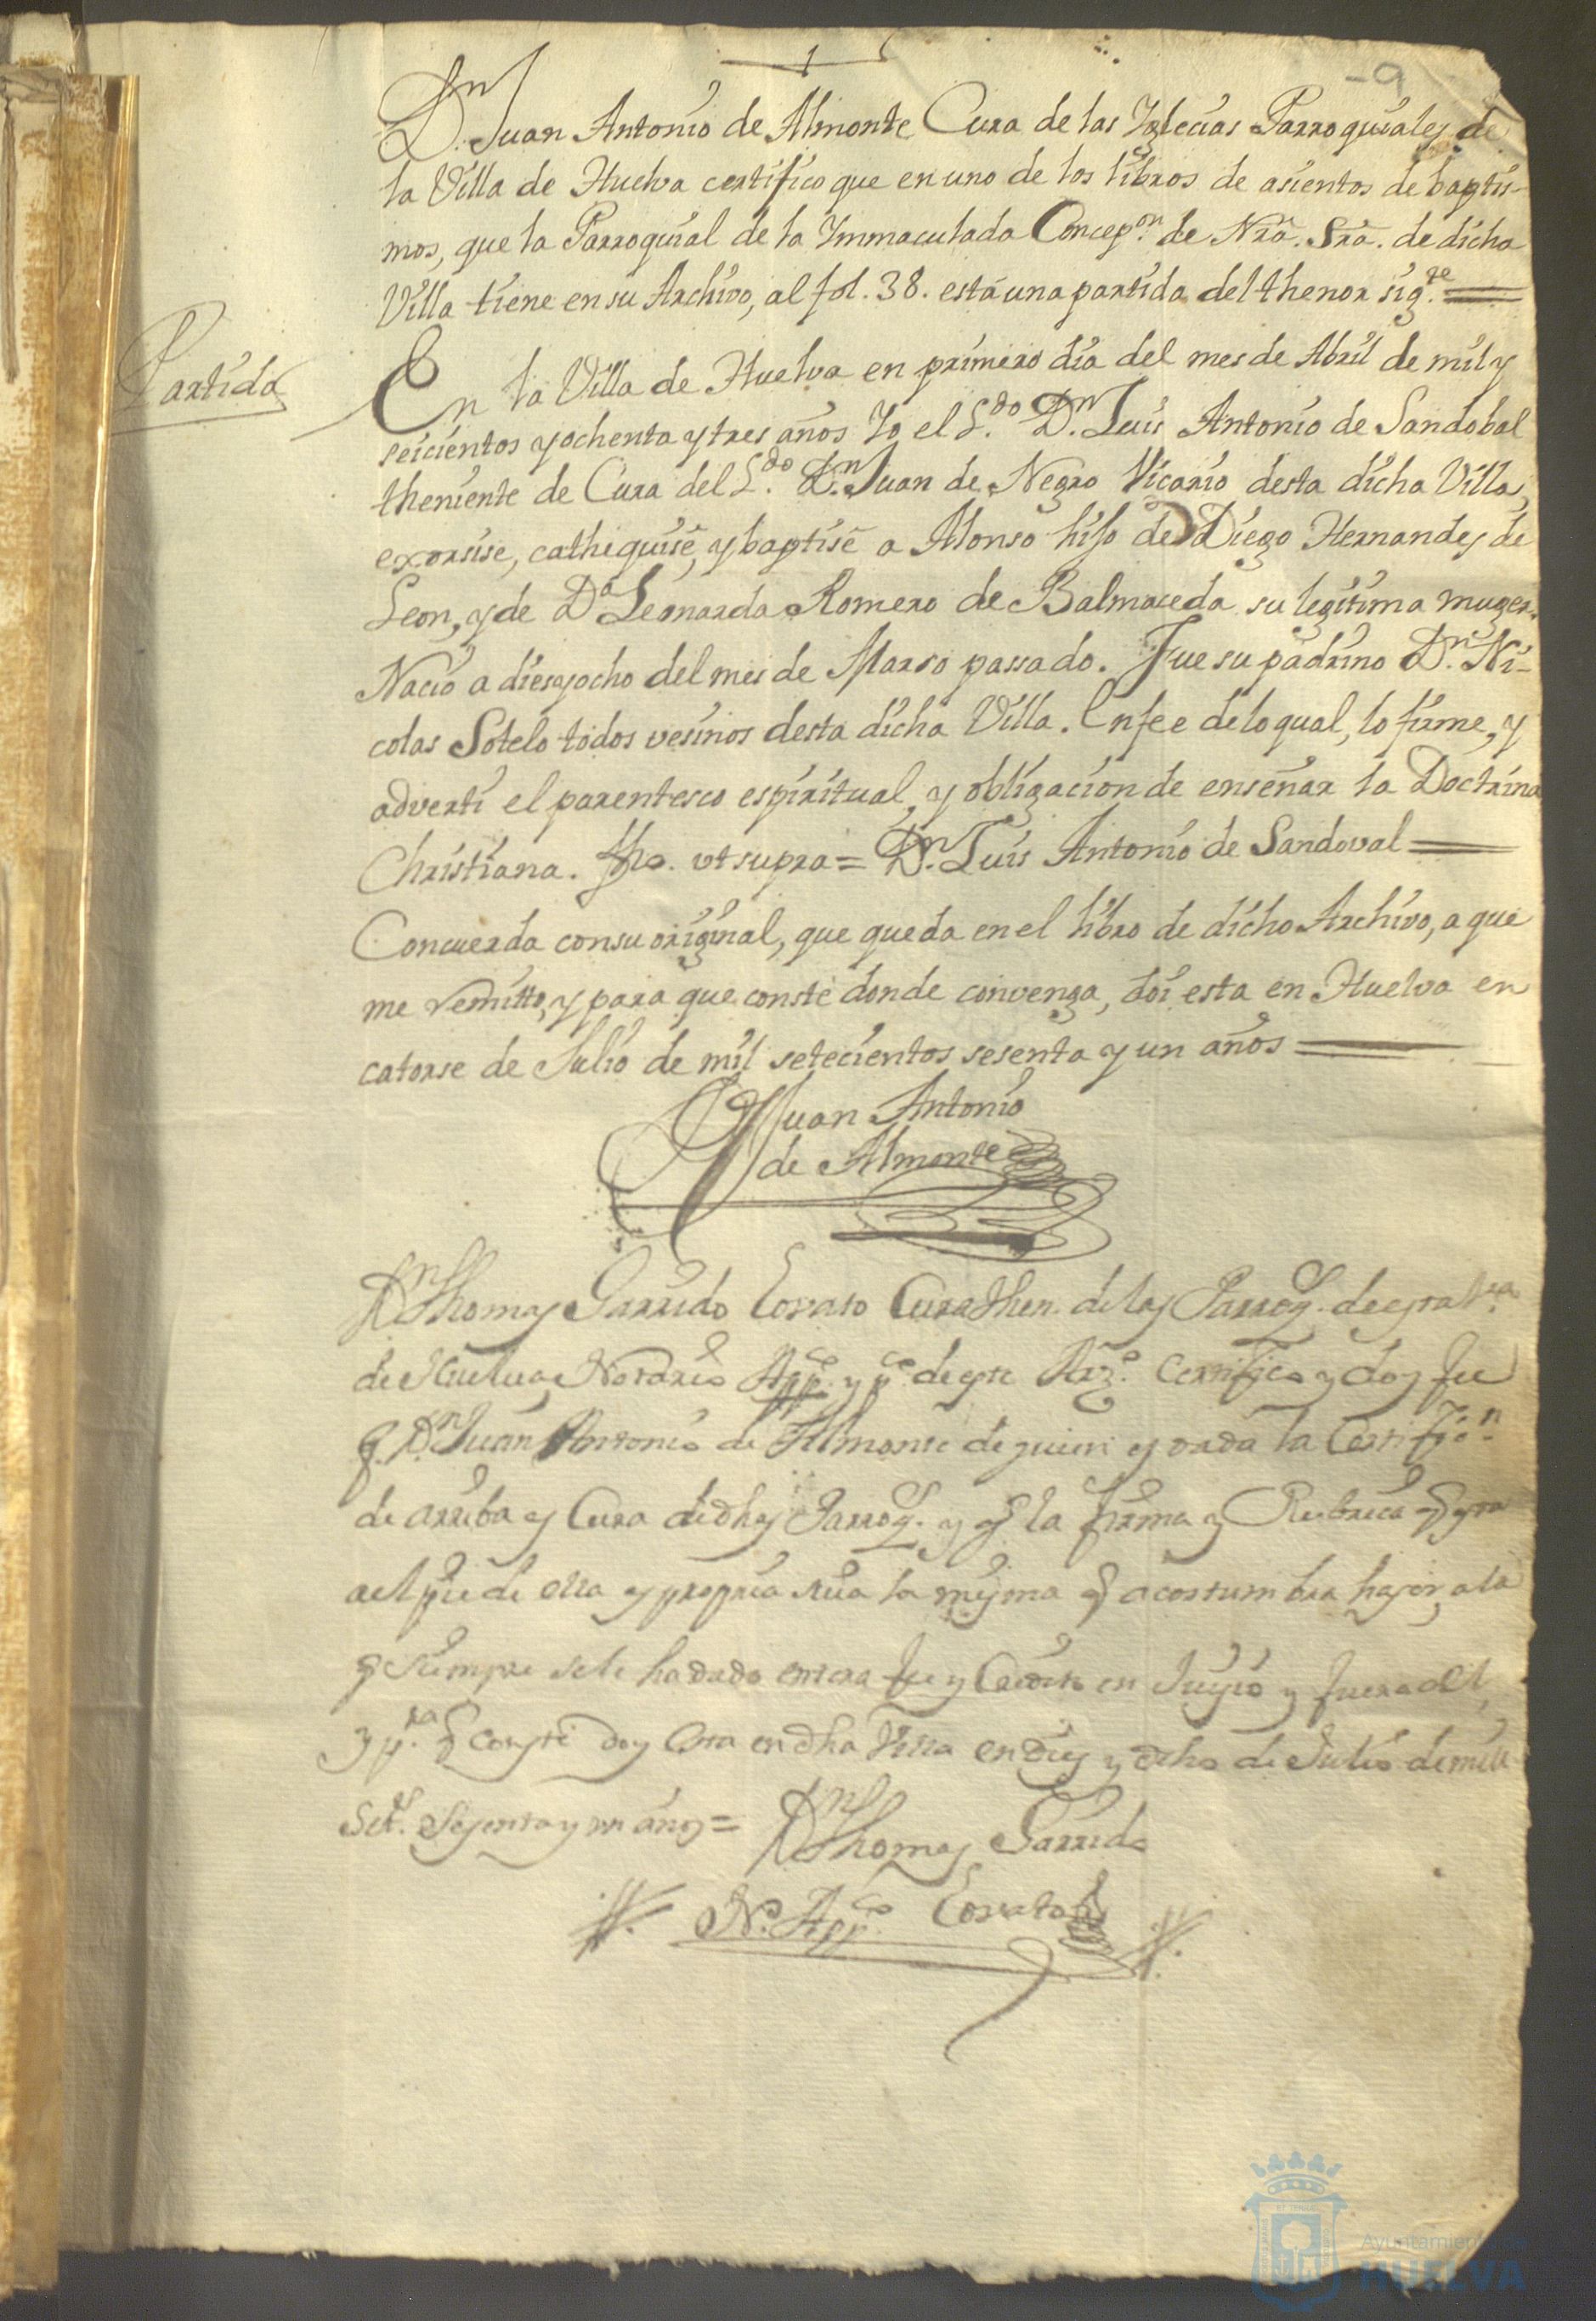 9
Dn. Juan Antonio de Almonte Cura de las Yglecias Parroquiales de
la Villa de Huelva certifico que en uno de los libros de asientos de baptis-
mos, que la Parroquial de la Ymmaculada Concepon. de Nra. Sra. de dicha
Villa tiene en su Archivo, al fol. 38. está una partida del thenor sigte. =
Partida
En la Villa de Huelva en primero dia del mes de Abril de mil y
seicientos y ochenta y tres años Yo el Ldo. Dn. Luis Antonio de Sandobal
theniente de Cura del Ldo. Dn. Juan de Negro Vicario desta dicha Villa,
exorsise, cathequisè, y baptisè a Alonso hijo de Diego Hernandes de
Leon, y de Da. Leonarda Romero de Balmaceda su legitima muger.
Naciò a diesyocho del mes de Marso passado. Fue su padrino Dn. Ni-
colas Sotelo todos vesinos desta dicha Villa. En fee de lo qual, lo firme, y
adverti el parentesco espiritual, y obligacion de enseñar la Doctrina
Christiana. fho. vt supra = Dn. Luis Antonio de Sandoval =
Concuerda con su original, que queda en el libro de dicho Archivo, a que
me remitto, y para que conste donde convenga, doi esta en Huelva en
catorse de Julio de mil setecientos sesenta y un años =
Dn Juan Antonio
de Almonte
Dn Thomas Garrido Cura Then. de las Parroqs. de esta Va.
de Huelva, Notario Appco. y pco. de este Arzo. Certifico y doy fee
q. Dn. Juan Antonio de Almonte de quien esta dada la Certificn.
de arriba es Cura de dhas Parroqs. y q la firma y Rubrica q esta
al pie de ella es propria suia la misma q acostumbra haser, a la
q siempre se le ha dado entera fee y Credito en Juysio y fuera del,
y pa. q conste doy esta en dha Villa en dies y ocho de Julio de mill
Sets. Sesenta y un años =
Dn Thomas Garrido
No. Appco.
Ayuntamiento de
HUELVA